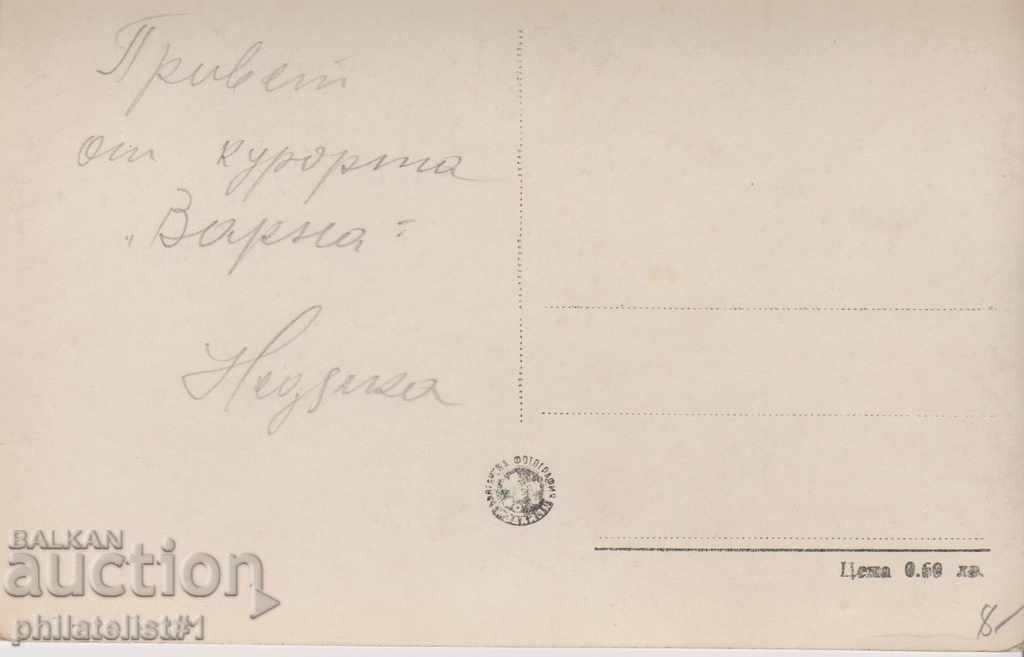 Привет
от курорта
„Варна"
ФОТОГРАФИЯ
Цена 0.60 лв.
BALKAN
auction
philatelist#1
8